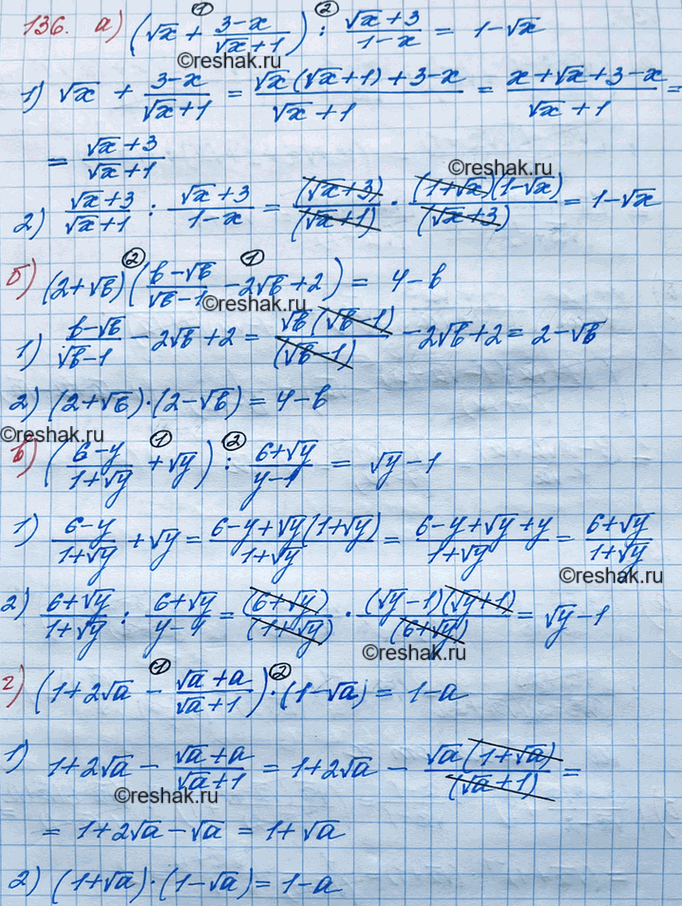 136. а) (√x + (3-x)/(√x+1)) : (√x+3)/(1-x) = 1-√x
① ②
©reshak.ru
1) √x + (3-x)/(√x+1) = (√x(√x+1)+3-x)/(√x+1) = (x+√x+3-x)/(√x+1) =
= (√x+3)/(√x+1)
©reshak.ru
2) (√x+3)/(√x+1) : (√x+3)/(1-x) = (√x+3)/(√x+1) · (1+√x)(1-√x)/(√x+3) = 1-√x
② ①
б) (2+√b)((b-√b)/(√b-1) - 2√b+2) = 4-b
©reshak.ru
1) (b-√b)/(√b-1) - 2√b+2 = √b(√b-1)/(√b-1) - 2√b+2 = 2-√b
2) (2+√b)·(2-√b) = 4-b
©reshak.ru
① ②
в) ((6-y)/(1+√y) + √y) : (6+√y)/(y-1) = √y-1
1) (6-y)/(1+√y) + √y = (6-y+√y(1+√y))/(1+√y) = (6-y+√y+y)/(1+√y) = (6+√y)/(1+√y)
©reshak.ru
2) (6+√y)/(1+√y) : (6+√y)/(y-1) = (6+√y)/(1+√y) · (√y-1)(√y+1)/(6+√y) = √y-1
©reshak.ru
① ②
г) (1+2√a - (√a+a)/(√a+1))·(1-√a) = 1-a
1) 1+2√a - (√a+a)/(√a+1) = 1+2√a - √a(1+√a)/(√a+1) =
©reshak.ru
= 1+2√a-√a = 1+√a
2) (1+√a)·(1-√a) = 1-a